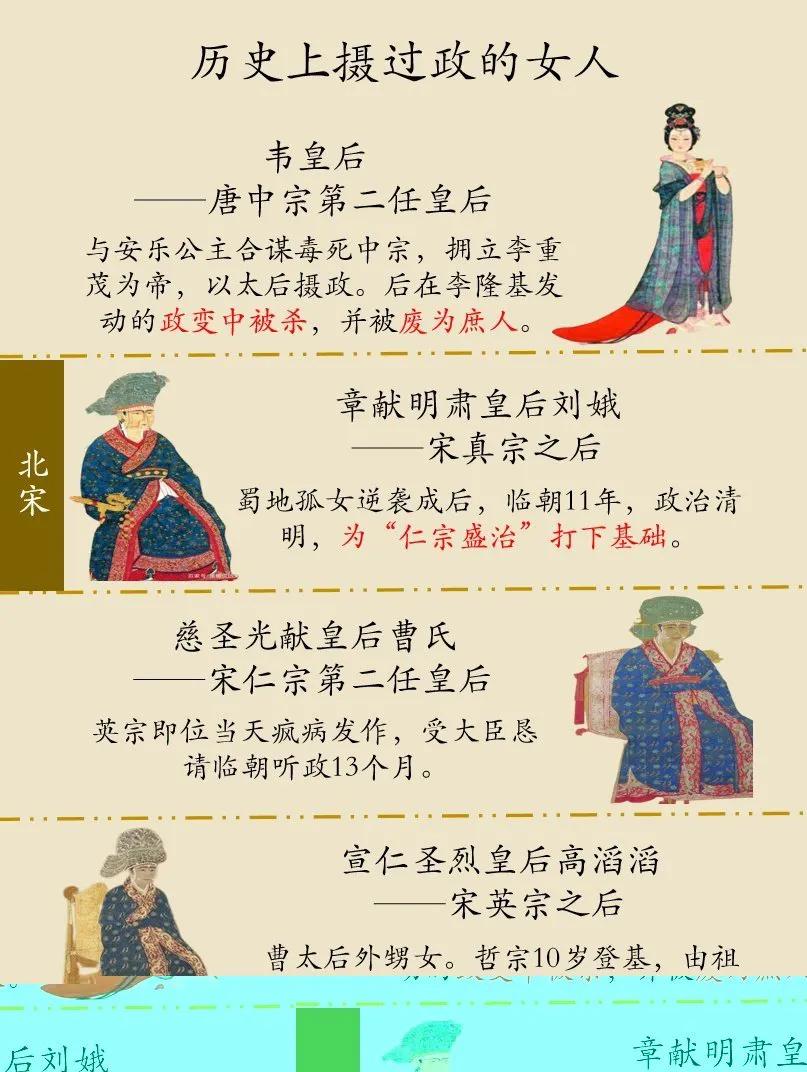 历史上摄过政的女人
韦皇后
——唐中宗第二任皇后
与安乐公主合谋毒死中宗，拥立李重
茂为帝，以太后摄政。后在李隆基发
动的政变中被杀，并被废为庶人。
北宋
章献明肃皇后刘娥
——宋真宗之后
蜀地孤女逆袭成后，临朝11年，政治清
明，为“仁宗盛治”打下基础。
慈圣光献皇后曹氏
——宋仁宗第二任皇后
英宗即位当天疯病发作，受大臣恳
请临朝听政13个月。
宣仁圣烈皇后高滔滔
——宋英宗之后
曹太后外甥女。哲宗10岁登基，由祖
后刘娥
章献明肃皇